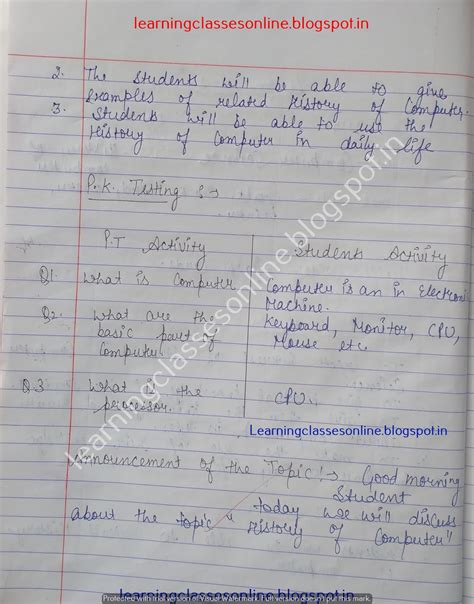 learningclassesonline.blogspot.in
2. The students will be able to give
examples of related History of Computer.
3. Students will be able to use the
History of Computer in daily life
P.K. Testing :→
P.T Activity Students Activity
Q1. What is Computer Computer is an in Electronic
Machine.
Q2. What are the Keyboard, Monitor, CPU,
basic part of Mouse etc
Computer
Q.3 What is the CPU.
processor.
Learningclassesonline.blogspot.in
Announcement of the Topic :→ Good morning
Student
about the topic " today we will discuss
History of Computer"
learningclassesonline.blogspot.in
Protected with trial version of Visual Watermark. Full version doesn't put this mark.
learningclassesonline.blogspot.in